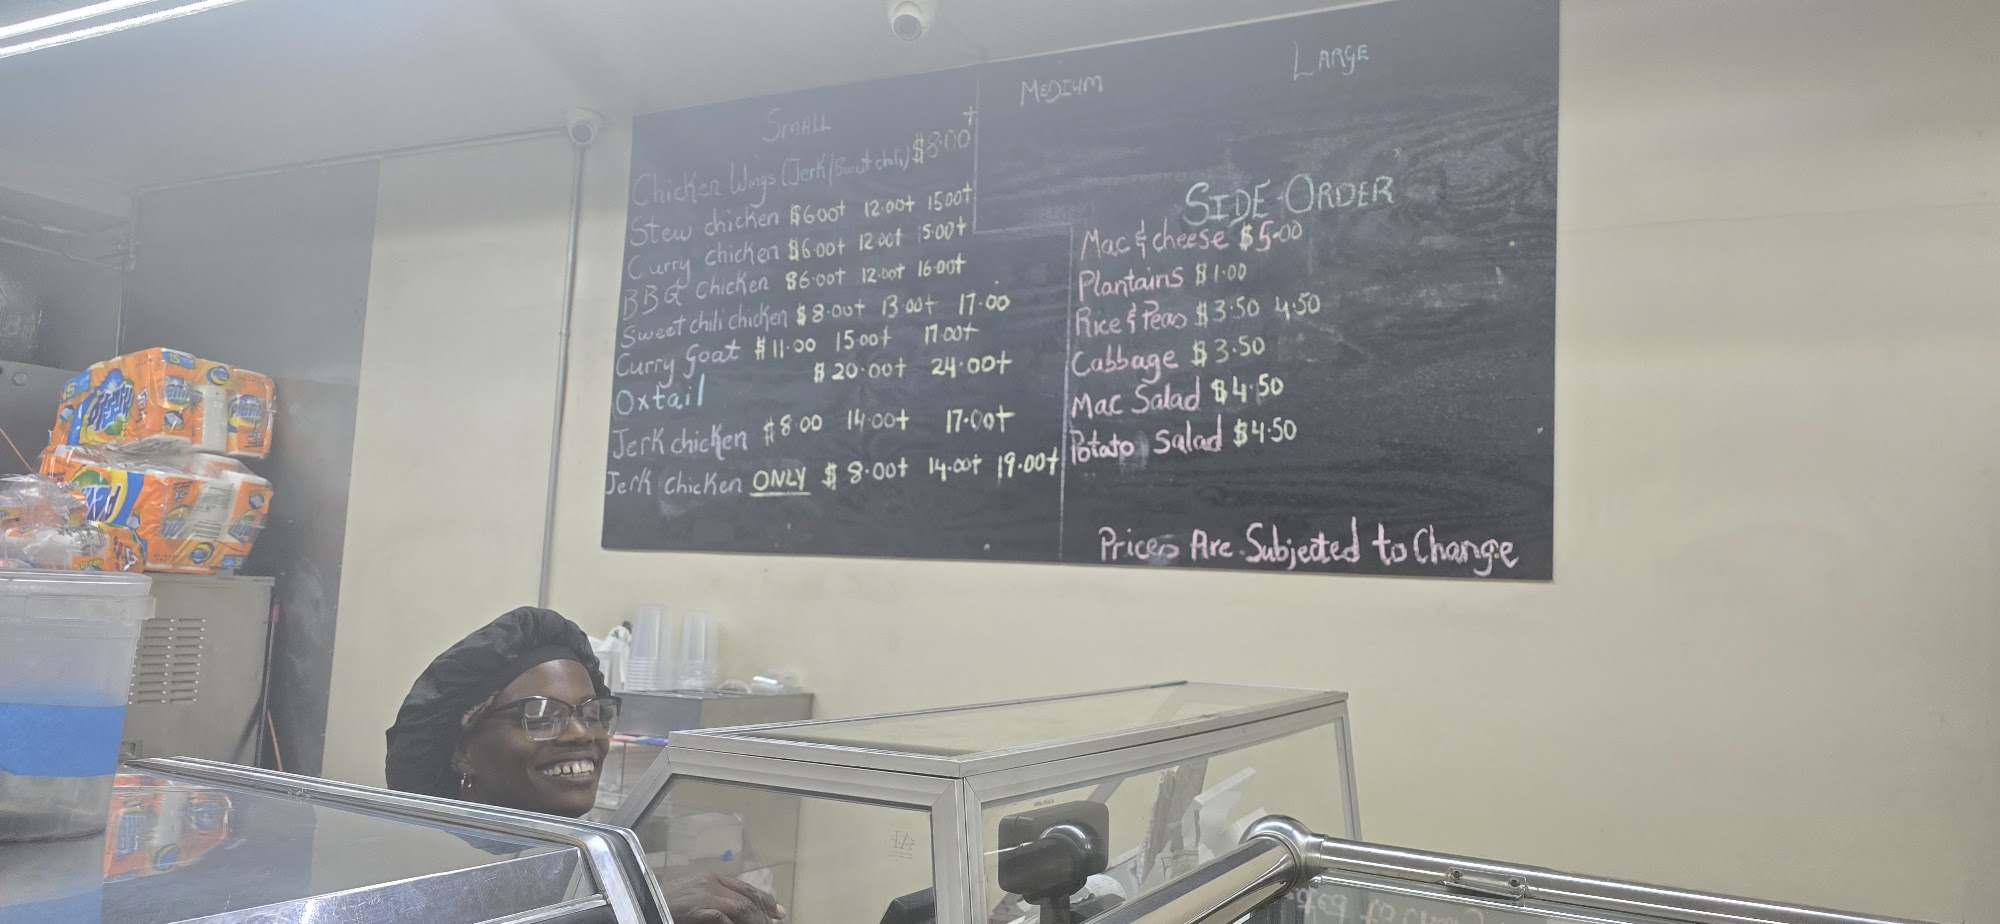 SMALL
MEDIUM
LARGE
Chicken Wings (Jerk/Sweet chili) $8.00+
Stew chicken $6.00+ 12.00+ 15.00+
Curry chicken $6.00+ 12.00+ 15.00+
BBQ chicken $6.00+ 12.00+ 16.00+
Sweet chili chicken $8.00+ 13.00+ 17.00
Curry Goat $11.00 15.00+ 17.00+
Oxtail $20.00+ 24.00+
Jerk chicken $8.00 14.00+ 17.00+
Jerk chicken ONLY $8.00+ 14.00+ 19.00+
SIDE ORDER
Mac & cheese $5.00
Plantains $1.00
Rice & Peas $3.50 4.50
Cabbage $3.50
Mac Salad $4.50
Potato Salad $4.50
Prices Are Subjected to Change